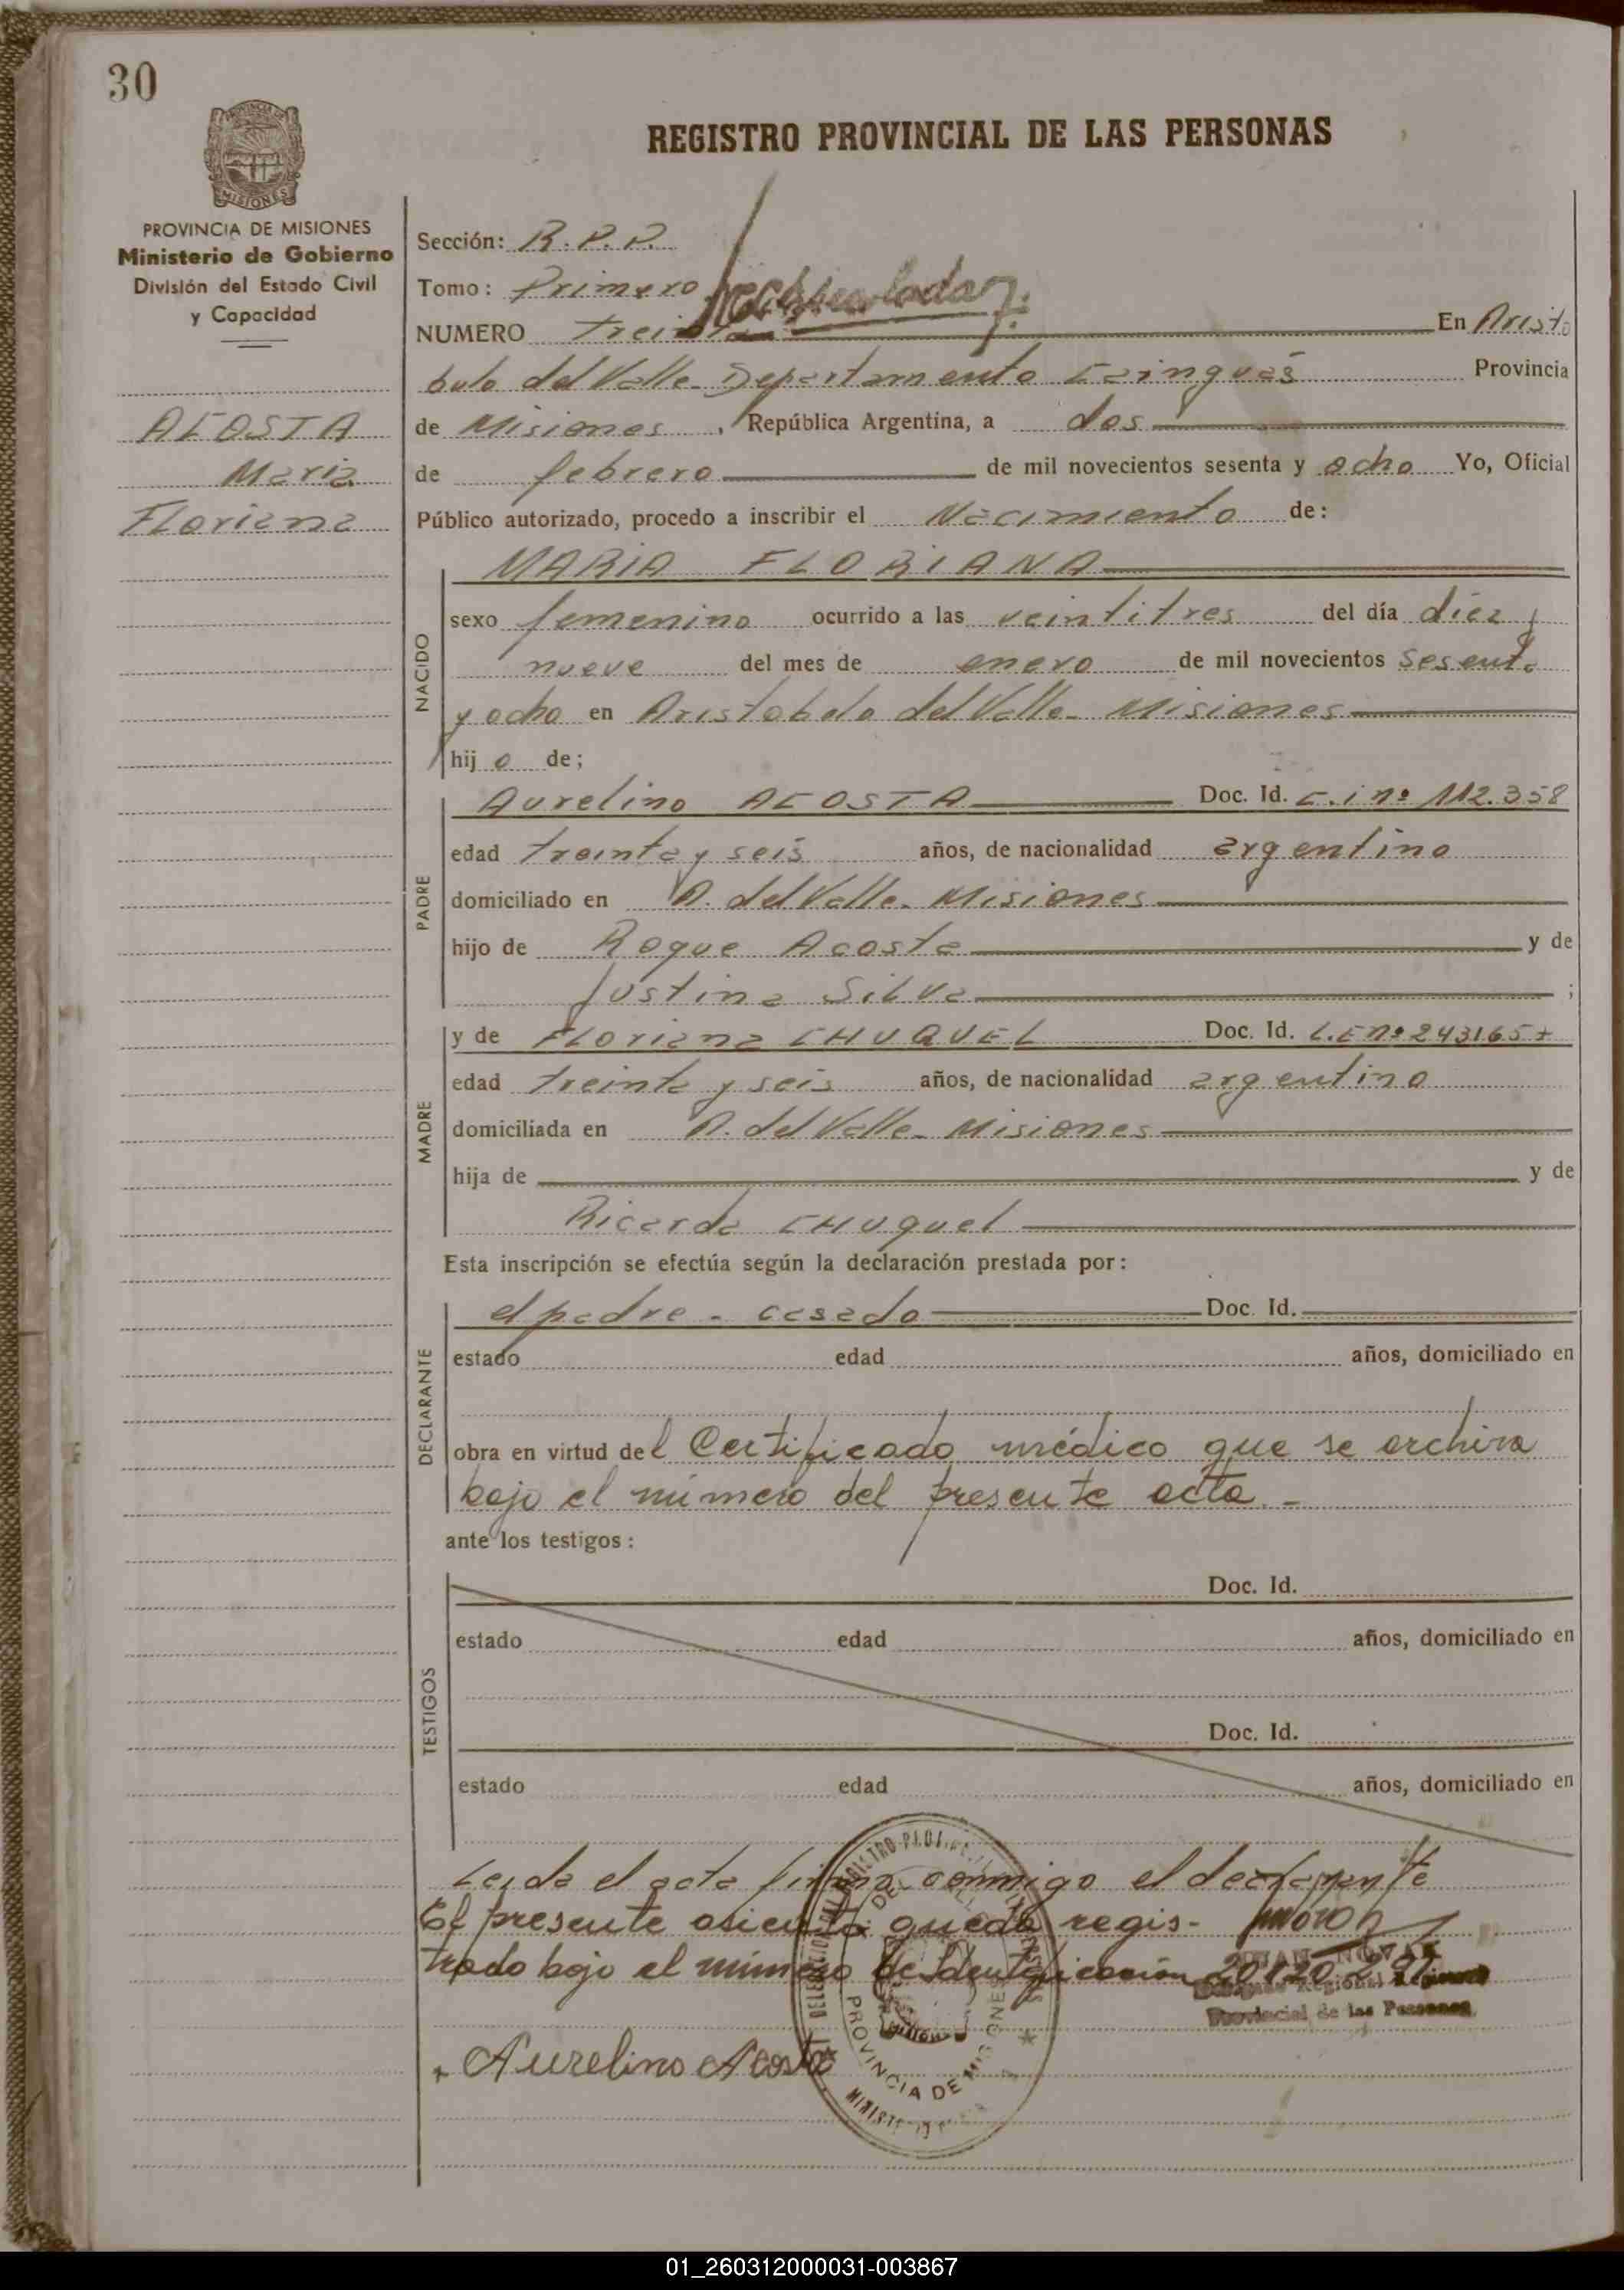 30
PROVINCIA DE MISIONES
Ministerio de Gobierno
División del Estado Civil
y Capacidad
ACOSTA
Maria
Floriana
REGISTRO PROVINCIAL DE LAS PERSONAS
Sección: R.P.P.
Tomo: Primero
NUMERO treinta En Aristo
bulo del Valle Departamento Cainguás Provincia
de Misiones, República Argentina, a dos
de febrero de mil novecientos sesenta y ocho Yo, Oficial
Público autorizado, procedo a inscribir el Nacimiento de:
NACIDO
MARIA FLORIANA
sexo femenino ocurrido a las veintitres del día diez y
nueve del mes de enero de mil novecientos sesenta
y ocho en Aristobulo del Valle - Misiones
hij o de;
PADRE
Aurelino ACOSTA Doc. Id. C.i nº 112.358
edad treinta y seis años, de nacionalidad argentino
domiciliado en A. del Valle - Misiones
hijo de Roque Acosta y de
Justina Silva ;
MADRE
y de Floriana CHUQUEL Doc. Id. L.C nº 243165
edad treinta y seis años, de nacionalidad argentino
domiciliada en A. del Valle - Misiones
hija de y de
Ricarda CHuquel
Esta inscripción se efectúa según la declaración prestada por:
DECLARANTE
el padre - casado Doc. Id.
estado edad años, domiciliado en
obra en virtud del Certificado médico que se archiva
bajo el número del presente acta. -
ante los testigos:
TESTIGOS
Doc. Id.
estado edad años, domiciliado en
Doc. Id.
estado edad años, domiciliado en
Leida el acta firma conmigo el declarante
El presente asiento queda regis-
trado bajo el número de Identificación 20.120.297
JUAN NOVAK
Delegado Regional Registro
Provincial de las Personas
PROVINCIA DE MISIONES
Aurelino Acosta
01_260312000031-003867